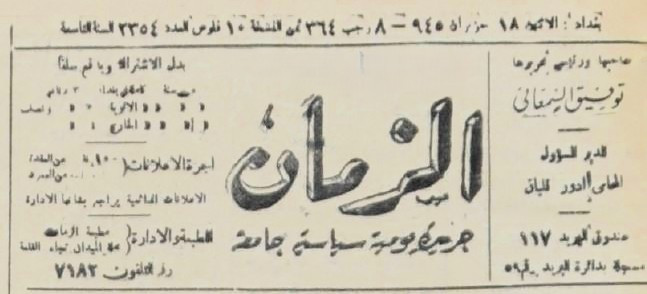 بغداد: الاثنين ١٨ حزيران ٩٤٥ — ٨ رجب ٣٦٤ ثمن النسخة ١٠ فلوس العدد ٢٣٥٤ السنة التاسعة
صاحبها ورئيس تحريرها
توفيق السمعاني
المدير المسؤول
المحامي ادور قليان
صندوق البريد ١١٧
مسجلة بدائرة البريد برقم ٥٩
الزمان
جريدة يومية سياسية جامعة
بدل الاشتراك ويدفع سلفاً
اجرة الاعلانات
الاعلانات الدائمية يراجع بشأنها الادارة
المطبعة والادارة
مطبعة الزمان
الميدان تجاه القلعة
رقم التلفون ٧١٨٢